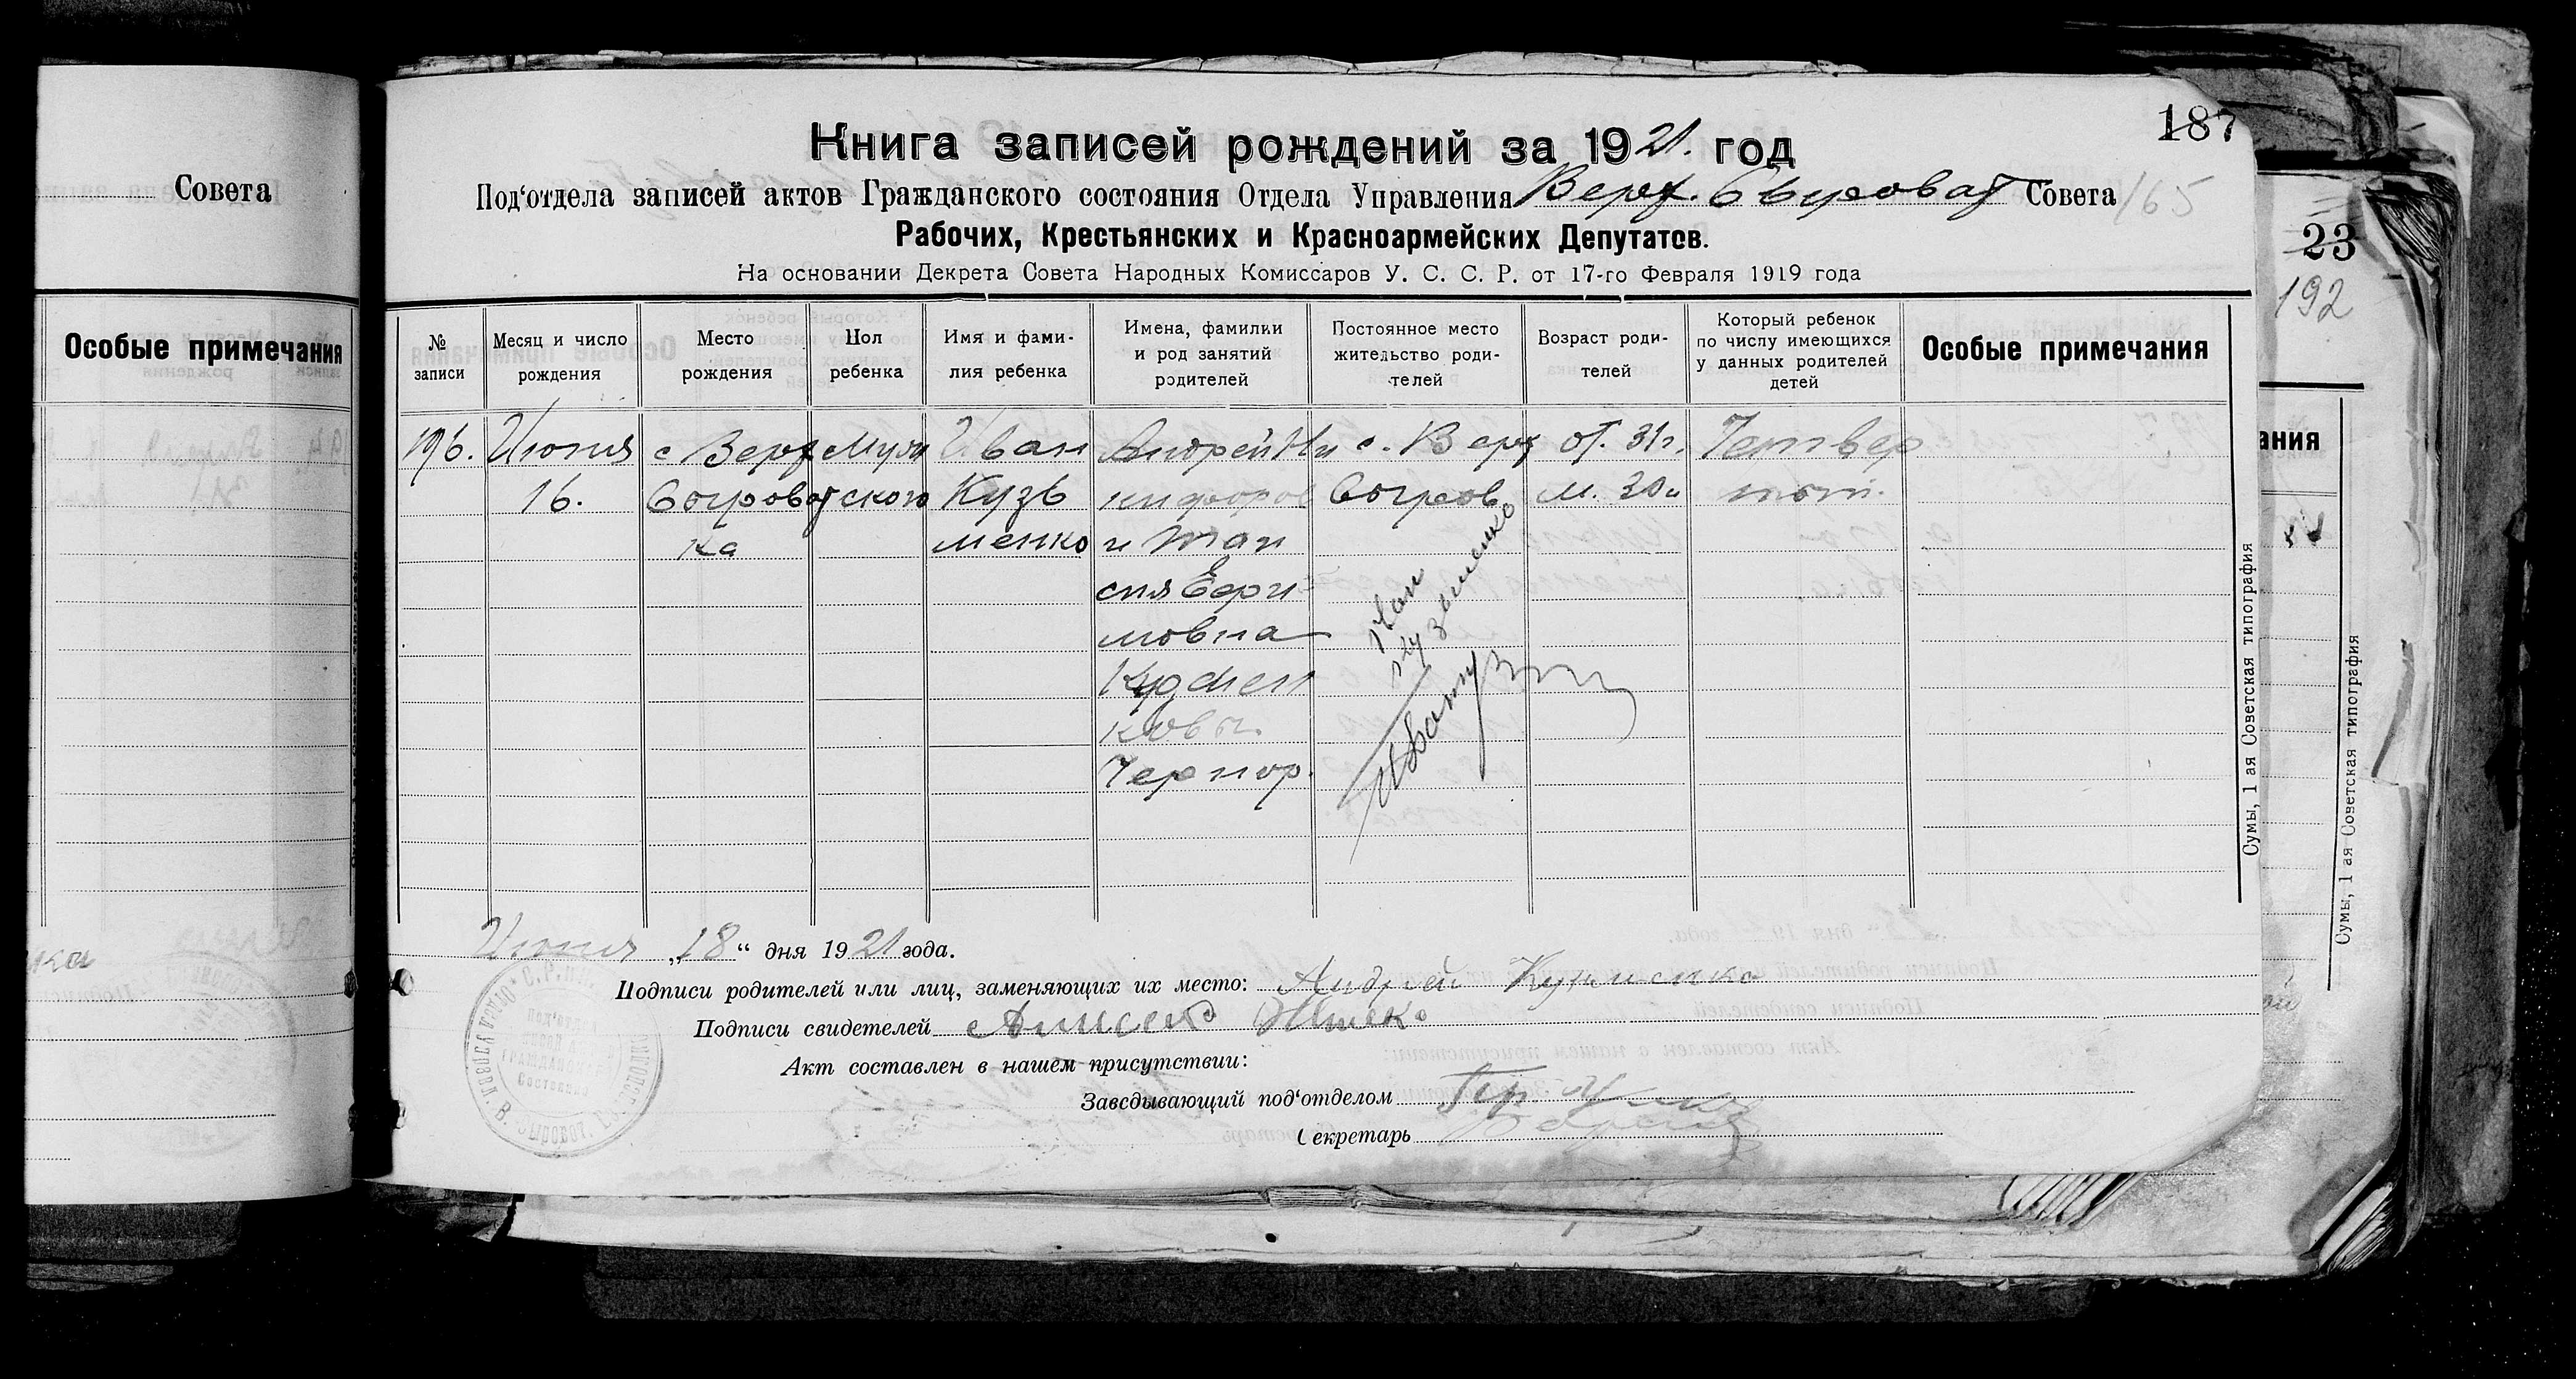 Совета
Особые примечания
187
Книга записей рождений за 1921. год
Под‘отдела записей актов Гражданского состояния Отдела Управления Верх. Сыроват Совета 165
Рабочих, Крестьянских и Красноармейских Депутатов.
На основании Декрета Совета Народных Комиссаров У. С. С. Р. от 17-го Февраля 1919 года
23
192
№ записи
Месяц и число рождения
Место рождения
Пол ребенка
Имя и фами-
лия ребенка
Имена, фамилии
и род занятий
родителей
Постоянное место
жительство роди-
телей
Возраст роди-
телей
Который ребенок
по числу имеющихся
у данных родителей
детей
Особые примечания
196.
Июня
16.
с Верх
Сыроват
ка
Муж
ского
Иван
Кузь
менко
Андрей Ни
кифоров
и Таи
сия Ефи
мовна
Кузмен
ковы.
Чернор.
с. Верх
Сыров
от. 31г.
м. 30л
Четвер
тый.
Иван
Кузьменко
Июня „18“ дня 1921 года.
Подписи родителей или лиц, заменяющих их место: Андрей Кузменко
Подписи свидетелей Алексей
Акт составлен в нашем присутствии:
Заведывающий под‘отделом
Секретарь
Сумы, 1 ая Советская типография
ания
Сумы, 1 ая Советская типография